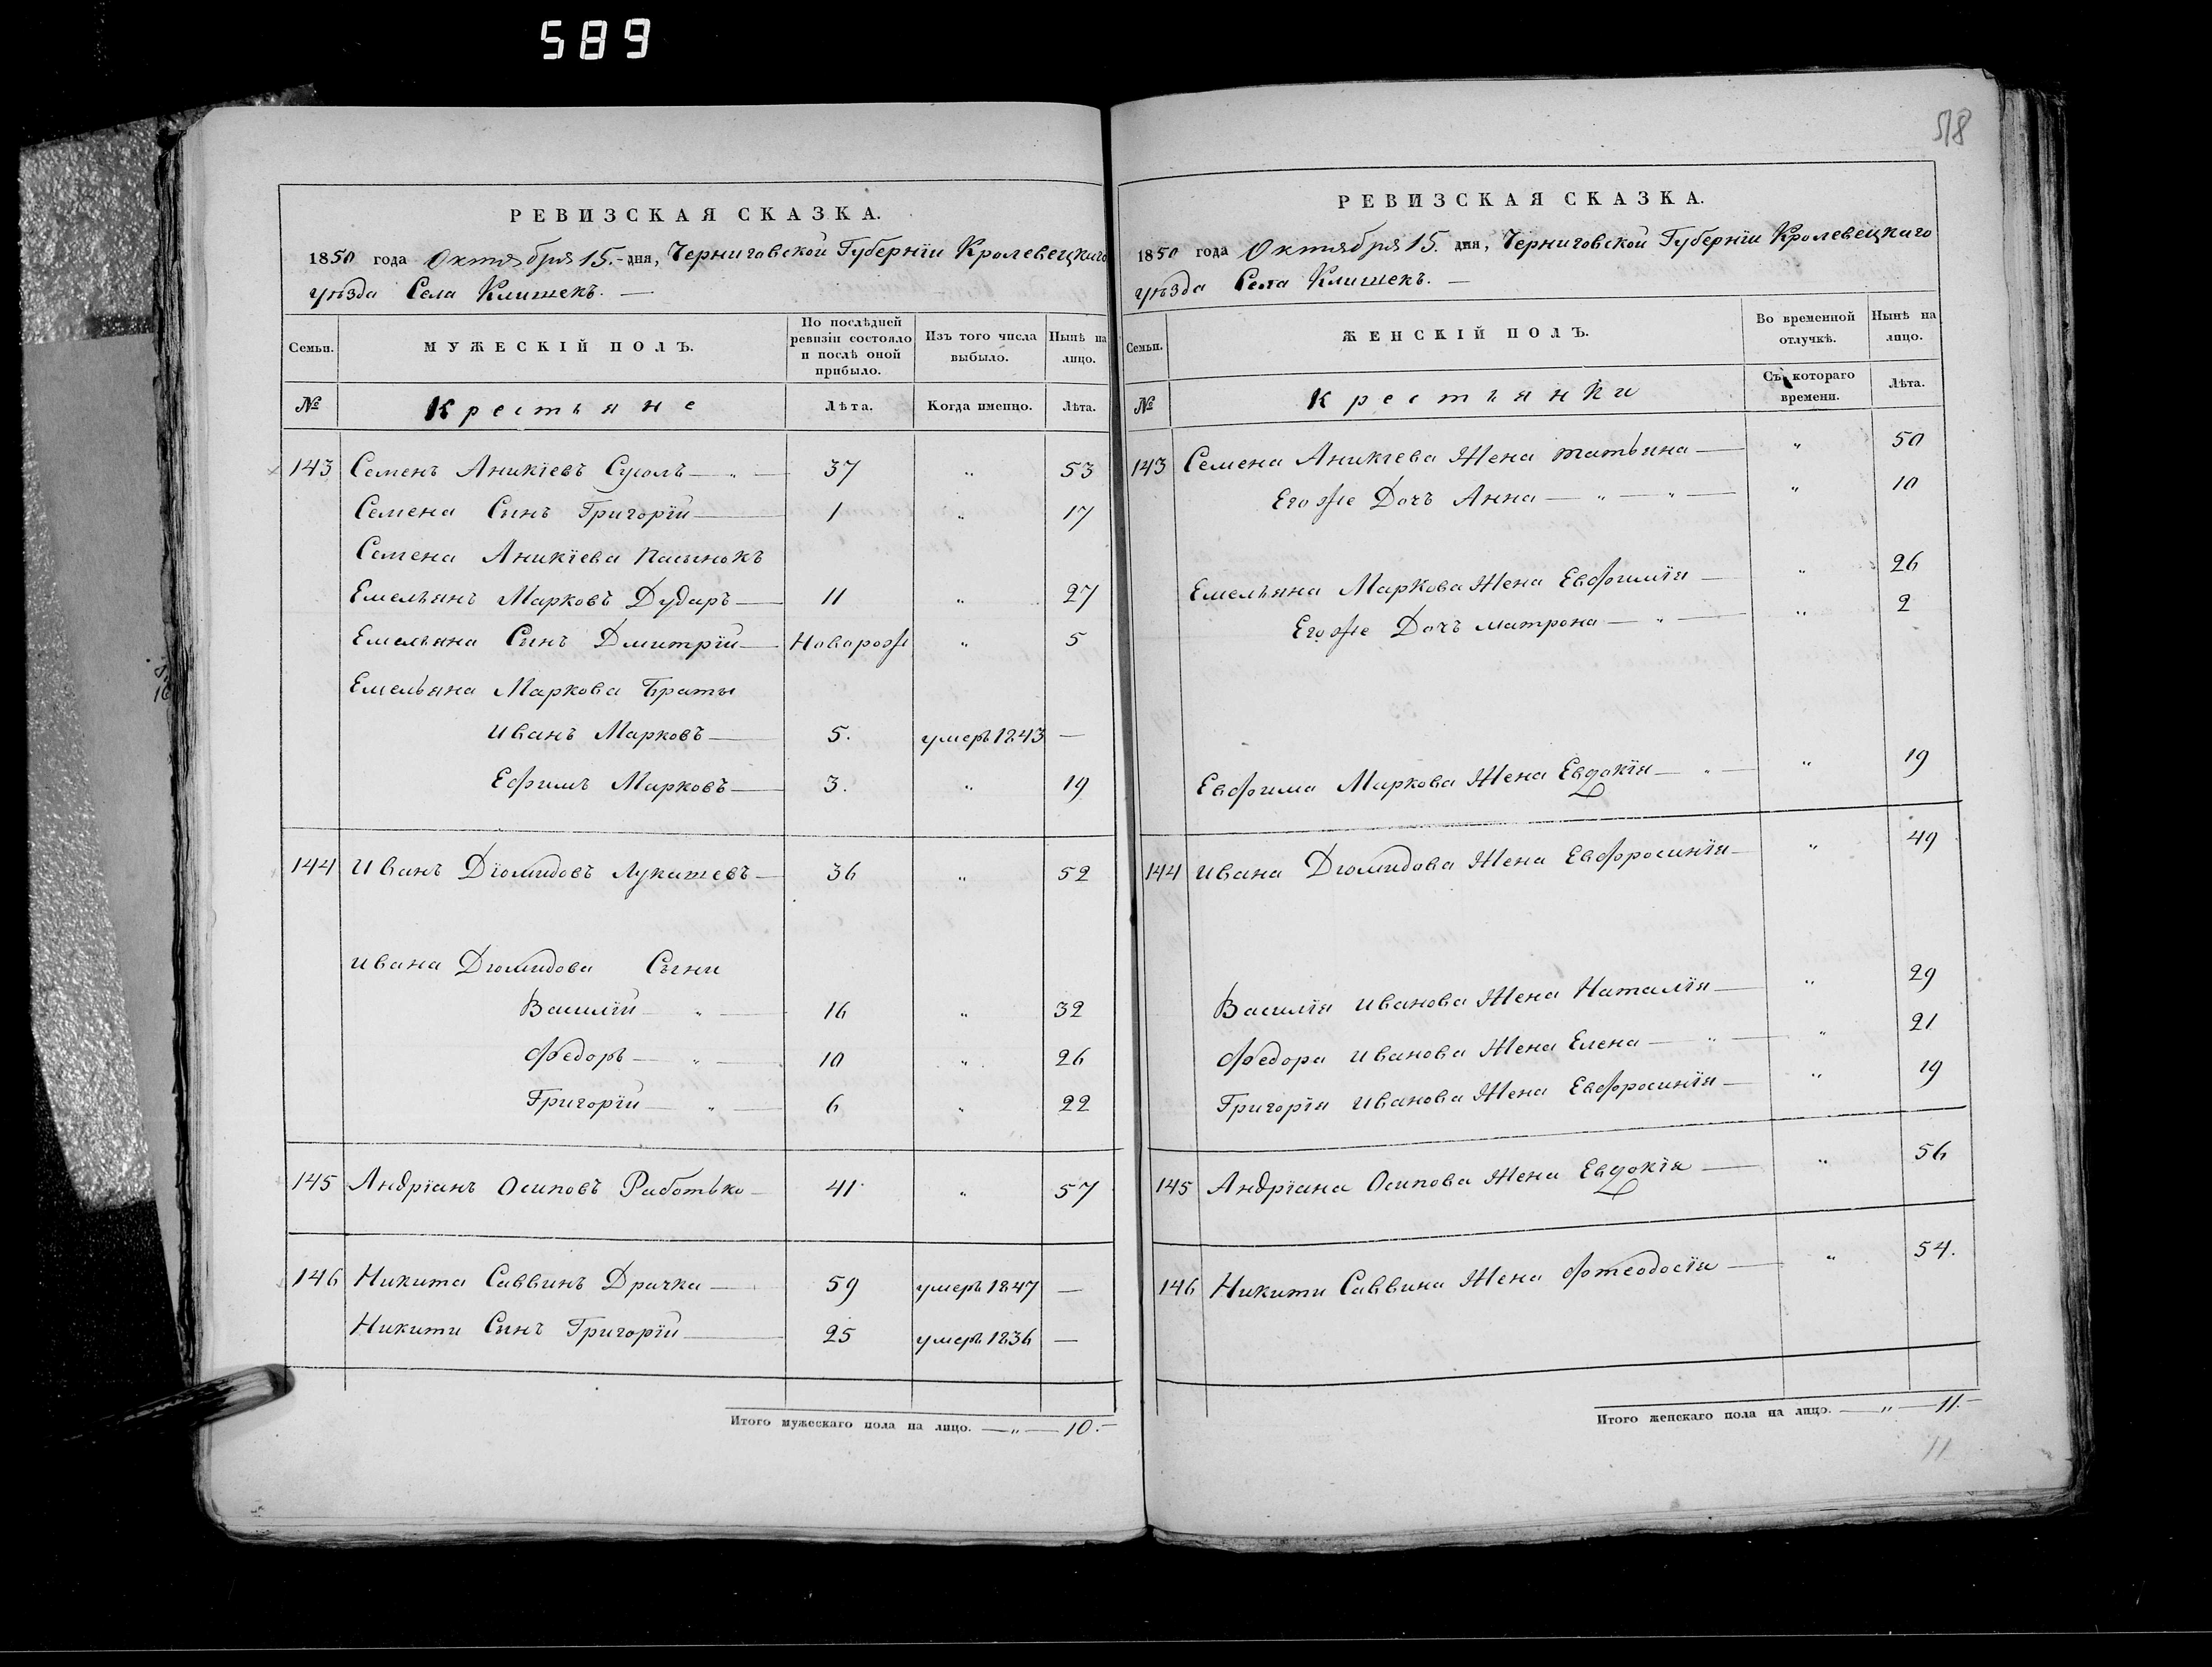 589
518
РЕВИЗСКАЯ СКАЗКА.
1850 года Октября 15.- дня, Черниговской Губерніи Кролевецкаго
уѣзда Села Клишекъ. —
Семьи.
МУЖЕСКІЙ ПОЛЪ.
По послѣдней ревизіи состояло и послѣ оной прибыло.
Изъ того числа выбыло.
Нынѣ на лицо.
№
Крестьяне
Лѣта.
Когда именно.
Лѣта.
143 Семенъ Аникіевъ — „ — 37 „ 53
Семена Сынъ Григорій — 1 „ 17
Семена Аникіева пасынокъ
Емельянъ Марковъ Дударъ — 11 „ 27
Емельяна Сынъ Дмитрій — Неворож „ 5
Емельяна Маркова Браты
Иванъ Марковъ — 5. умеръ 1843 —
Ефимъ Марковъ — 3. „ 19
144 Иванъ Діомидовъ Лукашевъ — 36 „ 52
Ивана Діомидова Сыни
Василій — „ — 16 „ 32
Федоръ — „ — 10 „ 26
Григорій — „ — 6 „ 22
145 Андріанъ Осиповъ Работько — 41 „ 57
146 Никита Саввинъ Драчка — 59 умеръ 1847 —
Никити Сынъ Григорій — 25 умеръ 1836 —
Итого мужескаго пола на лицо. — „ — 10. —
РЕВИЗСКАЯ СКАЗКА.
1850 года Октября 15. дня, Черниговской Губерніи Кролевецкаго
уѣзда Села Клишекъ. —
Семьи.
ЖЕНСКІЙ ПОЛЪ.
Во временной отлучкѣ.
Нынѣ на лицо.
№
Крестьянки
Съ котораго времени.
Лѣта.
143 Семена Аникіева Жена татьяна — „ 50
Егоже Дочъ Анна — „ — „ — „ 10
Емельяна Маркова Жена Евфимія — „ 26
Егоже Дочъ матрона — „ — „ 2
Евфима Маркова Жена Евдокія — „ — „ 19
144 Ивана Діомидова Жена Евфросинія — „ 49
Василія Иванова Жена Наталія — „ 29
Федора Иванова Жена Елена — „ — „ 21
Григорія Иванова Жена Евфросинія — „ 19
145 Андріана Осипова Жена Евдокія — „ 56
146 Никити Саввина Жена Фтеодосія — „ 54.
Итого женскаго пола на лицо. — „ — 11. —
11